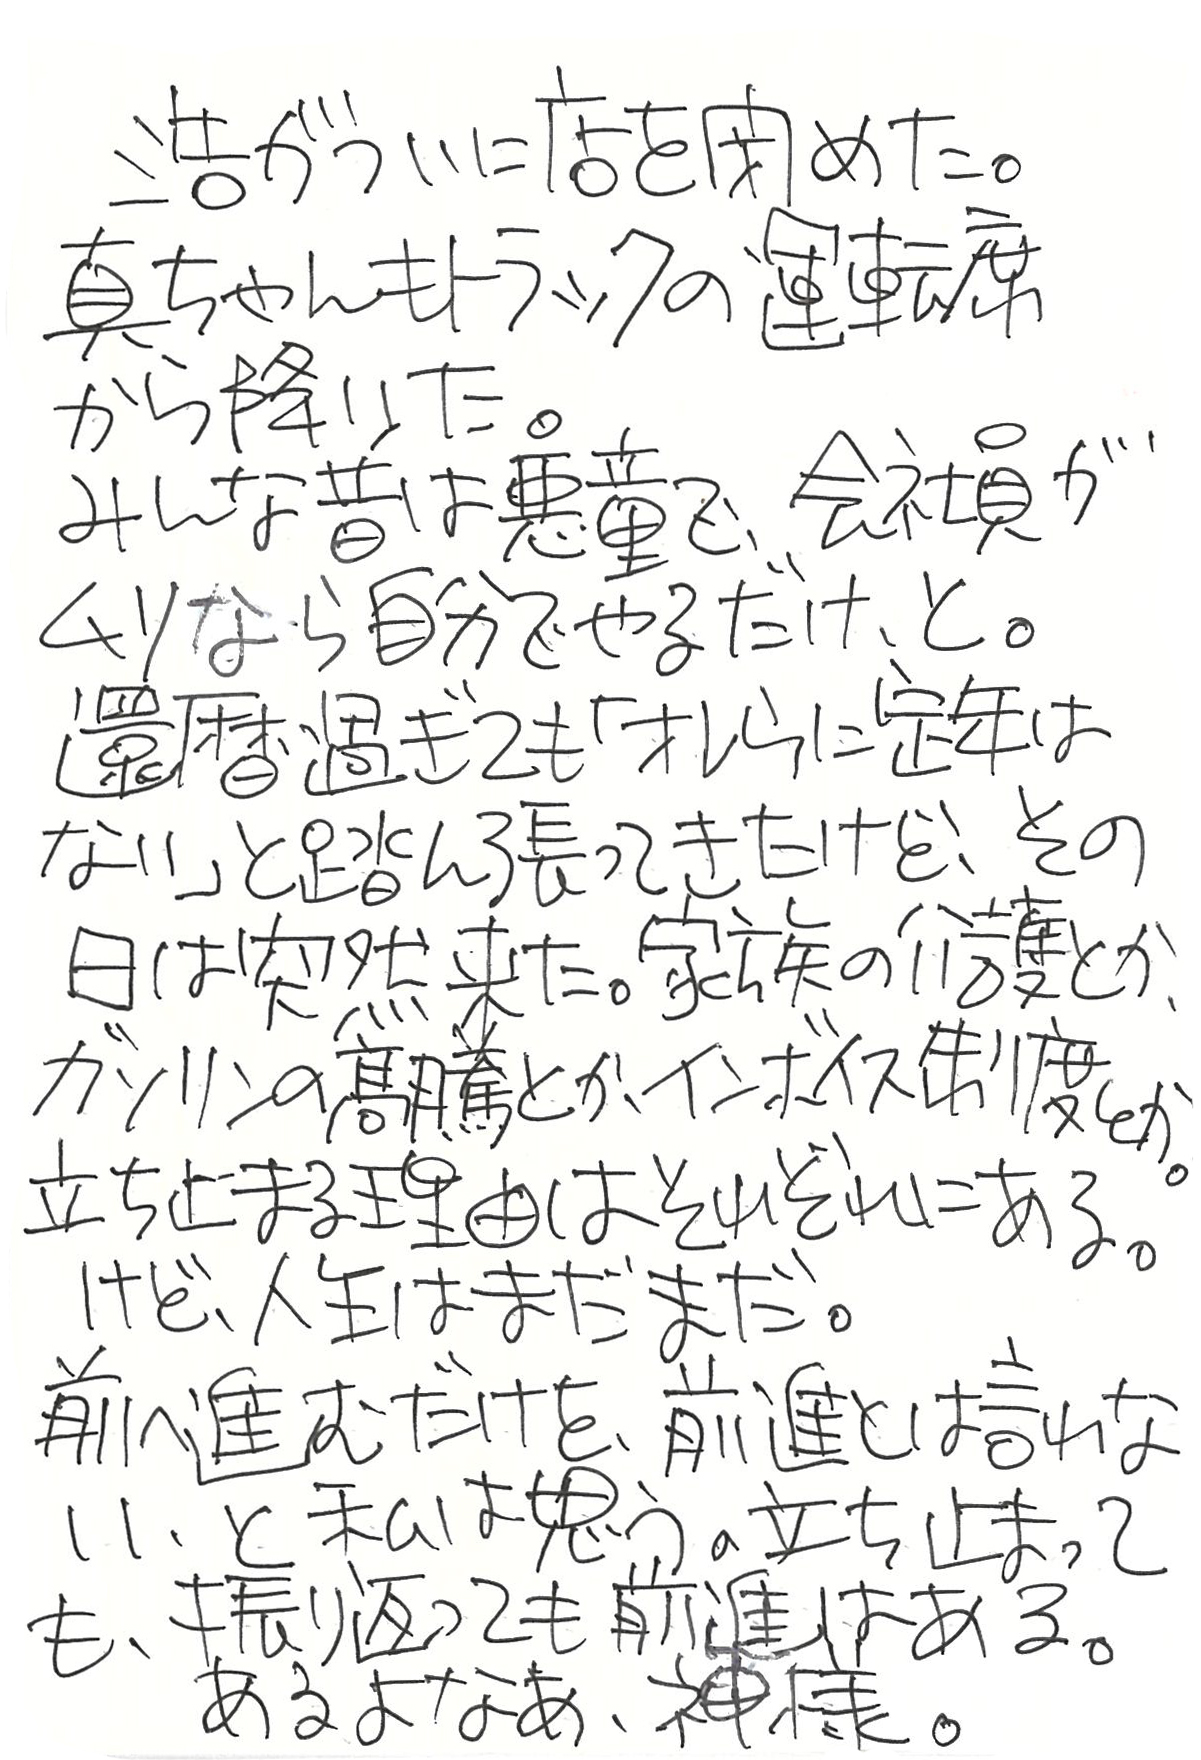 浩がついに店を閉めた。
真ちゃんもトラックの運転席
から降りた。
みんな昔は悪童で、会社員が
ムリなら自分でやるだけ、と。
還暦過ぎても「オレらに定年は
ない」と踏ん張ってきたけど、その
日は突然来た。家族の介護とか、
ガソリンの高騰とか、インボイス制度とか。
立ち止まる理由はそれぞれにある。
けど、人生はまだまだ。
前へ進むだけを、前進とは言わな
い、と私は思う。立ち止まって
も、振り返っても前進はある。
あるよなあ、神様。